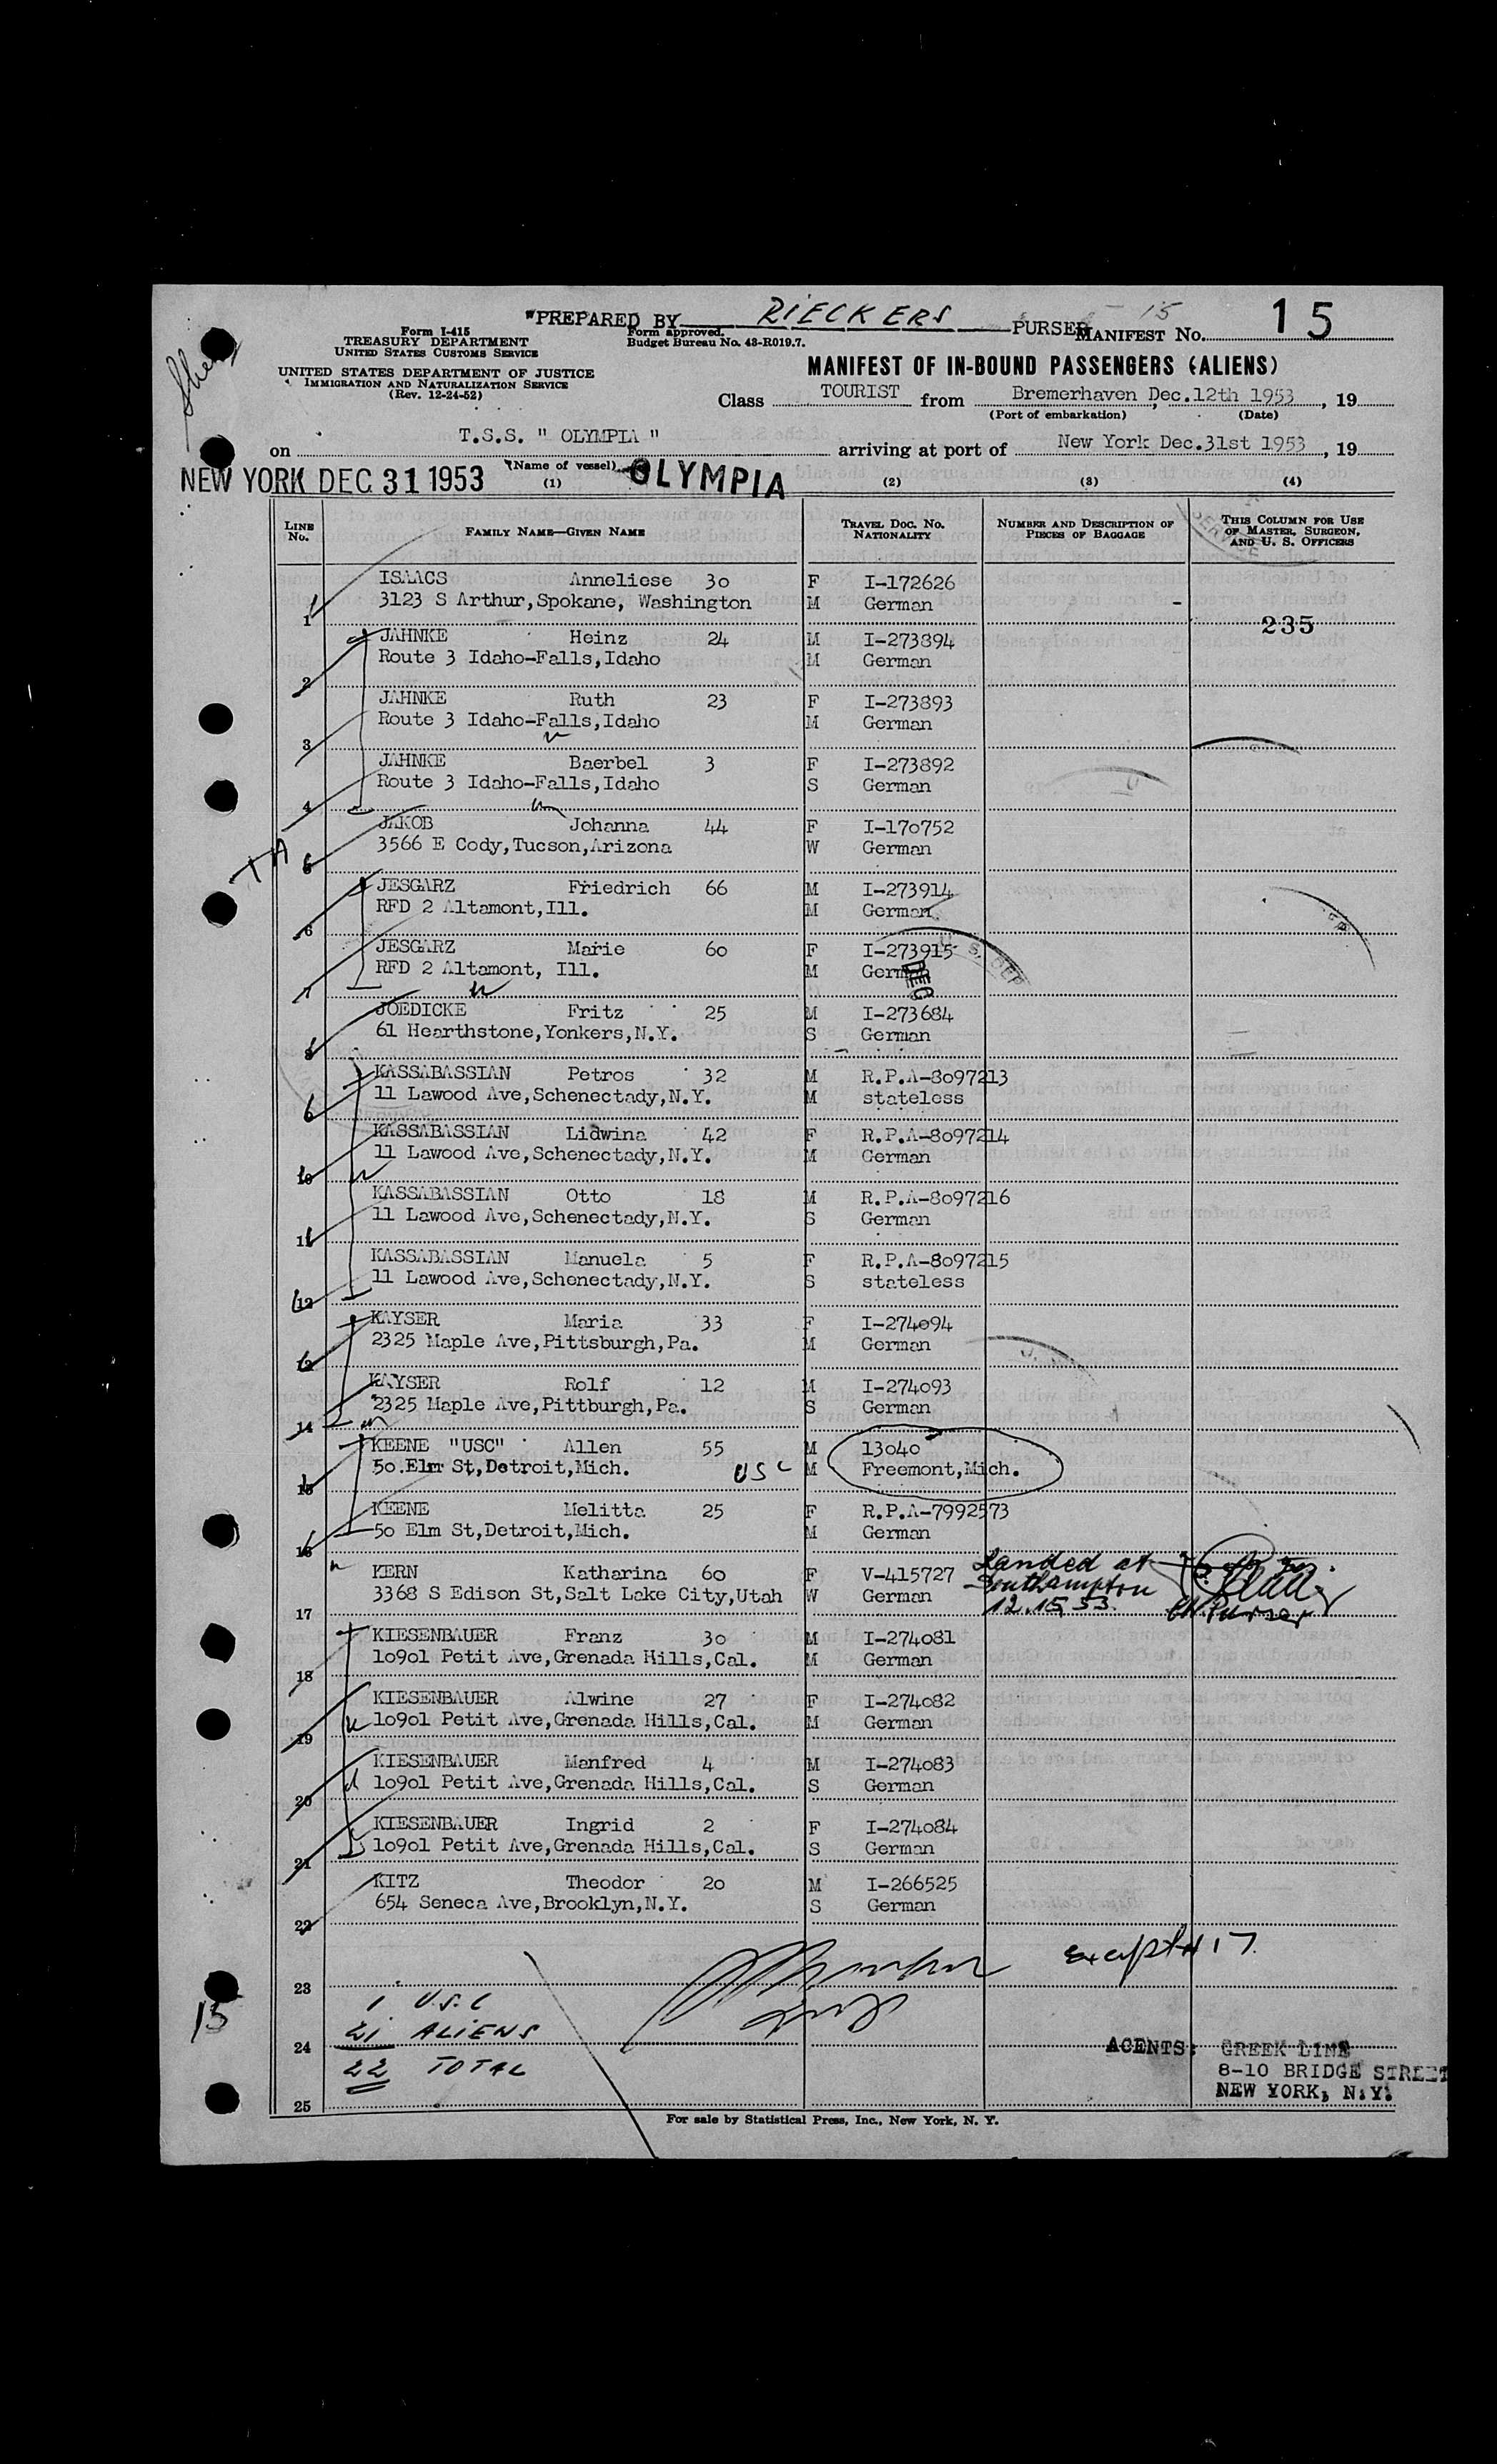 "PREPARED BY RIECKERS PURSER
15
MANIFEST No. 15
Form I-415
TREASURY DEPARTMENT
UNITED STATES CUSTOMS SERVICE
Form approved.
Budget Bureau No. 43-R019.7.
UNITED STATES DEPARTMENT OF JUSTICE
IMMIGRATION AND NATURALIZATION SERVICE
(Rev. 12-24-52)
MANIFEST OF IN-BOUND PASSENGERS (ALIENS)
Class TOURIST from Bremerhaven, Dec.12th 1953, 19
(Port of embarkation) (Date)
on T.S.S. " OLYMPIA " arriving at port of New York Dec.31st 1953, 19
(Name of vessel)
NEW YORK DEC 31 1953 OLYMPIA
(1) (2) (3) (4)
LINE No. FAMILY NAME—GIVEN NAME TRAVEL DOC. NO. NATIONALITY NUMBER AND DESCRIPTION OF PIECES OF BAGGAGE THIS COLUMN FOR USE OF MASTER, SURGEON, AND U. S. OFFICERS
ISAACS Anneliese 30 F I-172626
1 3123 S Arthur,Spokane, Washington M German -
235
JAHNKE Heinz 24 M I-273894
2 Route 3 Idaho-Falls,Idaho M German
JAHNKE Ruth 23 F I-273893
3 Route 3 Idaho-Falls,Idaho M German
JAHNKE Baerbel 3 F I-273892
4 Route 3 Idaho-Falls,Idaho S German
JAKOB Johanna 44 F I-170752
5 3566 E Cody,Tucson,Arizona W German
JESGARZ Friedrich 66 M I-273914
6 RFD 2 Altamont,Ill. M German
JESGARZ Marie 60 F I-273915
7 RFD 2 Altamont, Ill. M German
DEC
JOEDICKE Fritz 25 M I-273684
8 61 Hearthstone,Yonkers,N.Y. S German
KASSABASSIAN Petros 32 M R.P.A-8097213
9 11 Lawood Ave,Schenectady,N.Y. M stateless
KASSABASSIAN Lidwina 42 F R.P.A-8097214
10 11 Lawood Ave,Schenectady,N.Y. M German
KASSABASSIAN Otto 18 M R.P.A-8097216
11 11 Lawood Ave,Schenectady,N.Y. S German
KASSABASSIAN Manuela 5 F R.P.A-8097215
12 11 Lawood Ave,Schenectady,N.Y. S stateless
KAYSER Maria 33 F I-274094
13 2325 Maple Ave,Pittsburgh,Pa. M German
KAYSER Rolf 12 M I-274093
14 2325 Maple Ave,Pittburgh,Pa. S German
KEENE "USC" Allen 55 M 13040
15 50.Elm St,Detroit,Mich. USC M Freemont,Mich.
KEENE Melitta 25 F R.P.A-7992573
16 50 Elm St,Detroit,Mich. M German
KERN Katharina 60 F V-415727 Landed at
17 3368 S Edison St,Salt Lake City,Utah W German Southampton
12.15.53. Ch.Purser
KIESENBAUER Franz 30 M I-274081
18 10901 Petit Ave,Grenada Hills,Cal. M German
KIESENBAUER Alwine 27 F I-274082
19 10901 Petit Ave,Grenada Hills,Cal. M German
KIESENBAUER Manfred 4 M I-274083
20 10901 Petit Ave,Grenada Hills,Cal. S German
KIESENBAUER Ingrid 2 F I-274084
21 10901 Petit Ave,Grenada Hills,Cal. S German
KITZ Theodor 20 M I-266525
22 654 Seneca Ave,Brooklyn,N.Y. S German
Except # 17
23
1 U.S.C
24 21 ALIENS
22 TOTAL
25
15
AGENTS: GREEK LINE
8-10 BRIDGE STREET
NEW YORK, N.Y.
For sale by Statistical Press, Inc., New York, N. Y.